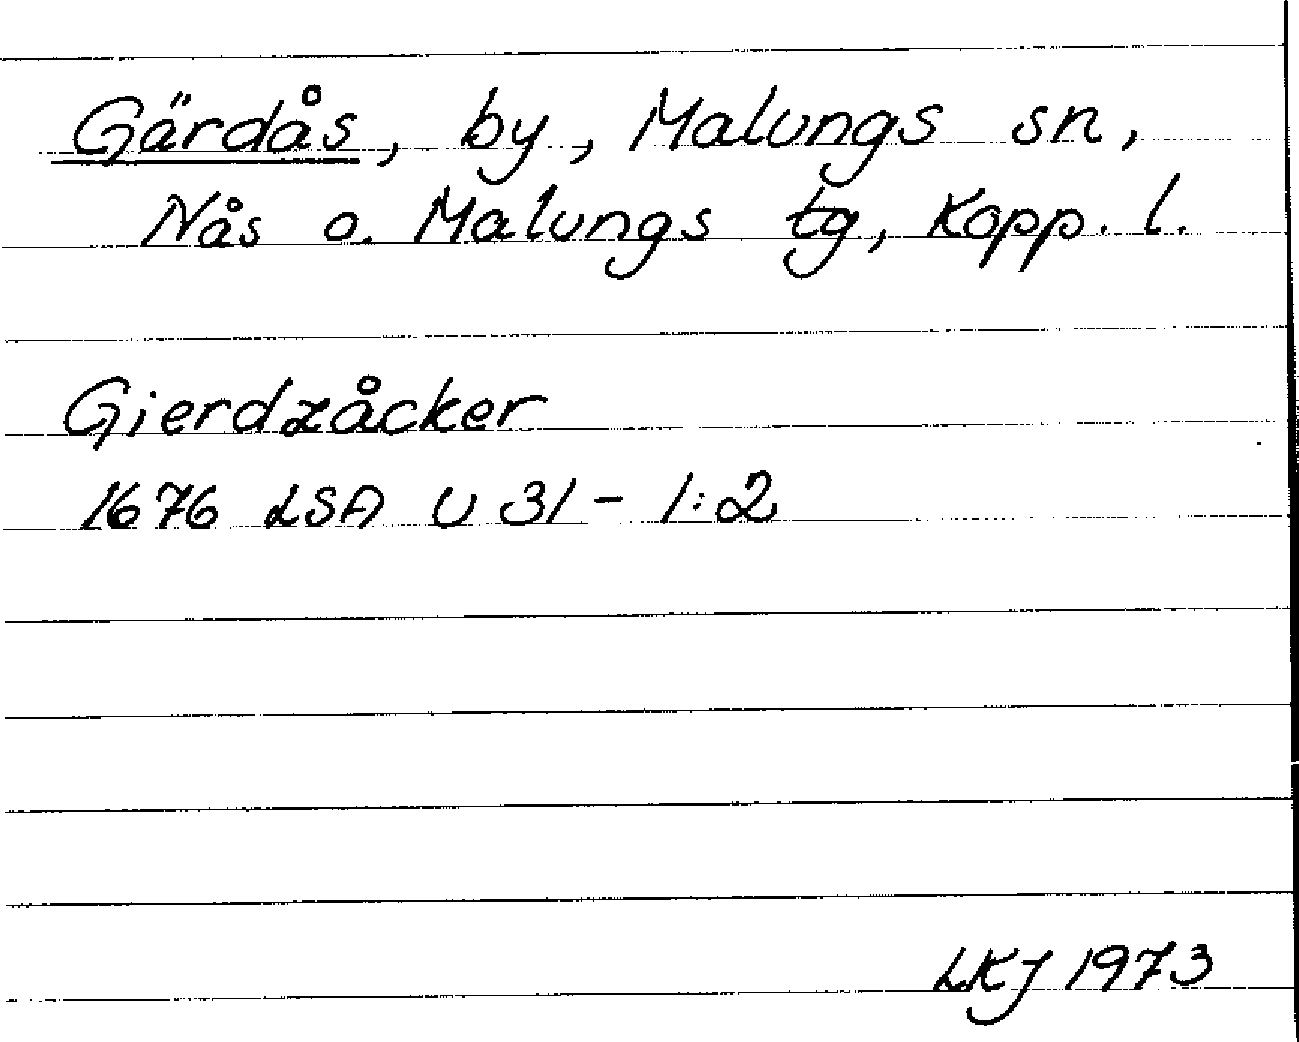 Gärdås, by, Malungs sn,
Nås o. Malungs tg, Kopp. l.
Gierdzåcker
1676 LSA U 31 - 1:2
LKJ 1973